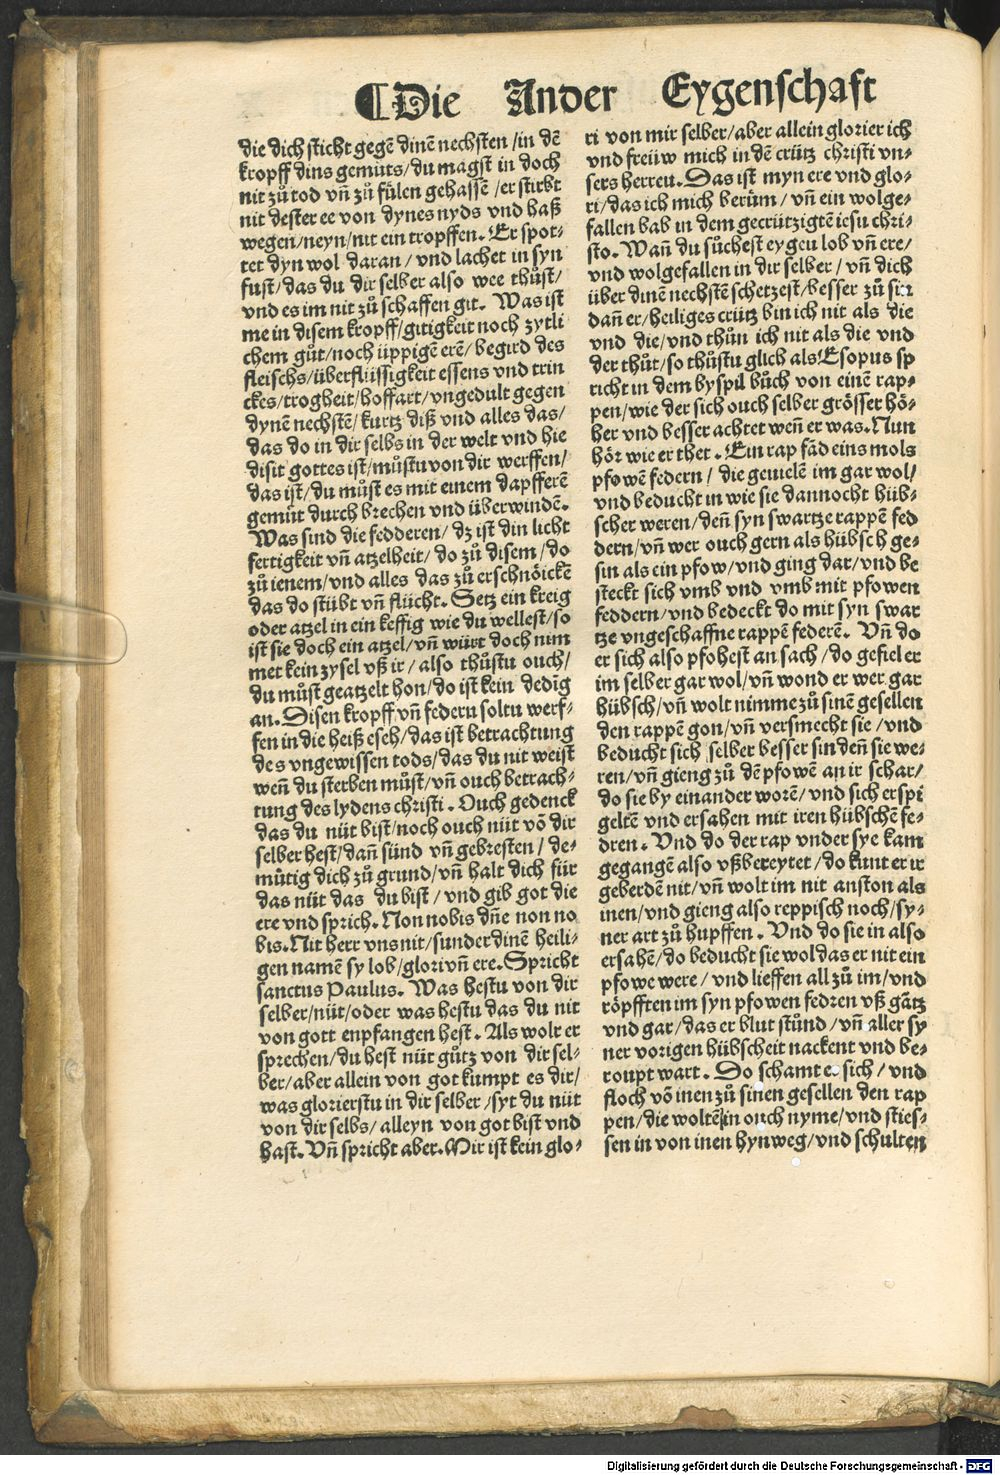 ¶Die Ander Eygenschaft
die dich sticht gegē dinē nechsten /in dē
kropff dins gemüts/du magst in doch
nit zů tod vñ zů fülen gehassē /er stirbt
nit dester ee von dynes nyds vnd haß
wegen/neyn/nit ein tropffen. Er spot⸗
tet dyn wol daran/ vnd lachet in syn
fust/das du dir selber also wee thůst/
vnd es im nit zů schaffen git. Was ist
me in disem kropff/gitigkeit noch zytli
chem gůt/noch üppigē erē/ begird des
fleischs/überflüssigkeit essens vnd trin
ckes/trogheit/hoffart/vngedult gegen
dynē nechstē/ kurtz diß vnd alles das/
das do in dir selbs in der welt vnd hie
disit gottes ist/můstu von dir werffen/
das ist/du můst es mit einem dapfferē
gemüt durch brechen vnd überwindē.
Was sind die fedderen/ dz ist din licht
fertigkeit vñ atzelheit/ do zů disem/do
zů ienem/vnd alles das zů erschnöickē
das do stübt vñ flücht. Setz ein kreig
oder atzel in ein keffig wie du wellest/so
ist sie doch ein atzel/vñ würt doch nim
mer kein zysel vß ir/ also thůstu ouch/
du můst geatzelt hon/do ist kein dedīg
an. Disen kropff vñ federn soltu werf⸗
fen in die heiß esch/das ist betrachtung
des vngewissen tods/das du nit weist
weñ du sterben můst/vñ ouch betrach⸗
tung des lydens christi. Ouch gedenck
das du nüt bist/noch ouch nüt vō dir
selber hest/dañ sünd vñ gebresten/ de⸗
mütig dich zů grund/vñ halt dich für
das nüt das du bist/ vnd gib got die
ere vnd sprich. Non nobis dñe non no
bis. Nit herr vns nit/sunder dinē heili⸗
gen namē sy lob/glori vñ ere. Spricht
sanctus Paulus. Was hestu von dir
selber/nüt/oder was hestu das du nit
von gott enpfangen hest. Als wolt er
sprechen/du hest nüt gůtz von dir sel⸗
ber/aber allein von got kumpt es dir/
was glorierstu in dir selber/syt du nüt
von dir selbs/ alleyn von got bist vnd
hast. Vñ spricht aber. Mir ist kein glo⸗
ri von mir selber/aber allein glorier ich
vnd freüw mich in dē crütz christi vn⸗
sers herren. Das ist myn ere vnd glo⸗
ri/das ich mich berüm/ vñ ein wolge⸗
fallen hab in dem gecrützigtē iesu chri⸗
sto. Wañ du sůchest eygen lob vñ ere/
vnd wolgefallen in dir selber/ vñ dich
über dinē nechstē schetzest/besser zů sin
dañ er/heiliges crütz bin ich nit als die
vnd die/vnd thůn ich nit als die vnd
der thůt/so thůstu glich als Esopus sp
richt in dem byspil bůch von einē rap⸗
pen/wie der sich ouch selber grösser hö⸗
her vnd besser achtet weñ er was. Nun
hör wie er thet. Ein rap fād eins mols
pfowē federn/ die geuielē im gar wol/
vnd beducht in wie sie dannocht hüb⸗
scher weren/deñ syn swartze rappē fed
dern/vñ wer ouch gern als hübsch ge⸗
sin als ein pfow/vnd ging dar/vnd be
steckt sich vmb vnd vmb mit pfowen
feddern/vnd bedeckt do mit syn swar
tze vngeschaffne rappē federē. Vñ do
er sich also pfohest an sach/do gefiel er
im selber gar wol/vñ wond er wer gar
hübsch/vñ wolt nimme zů sinē gesellen
den rappē gon/vñ versmecht sie/vnd
beducht sich selber besser sin deñ sie we⸗
ren/vñ gieng zů dē pfowē an ir schar/
do sie by einander worē/vnd sich erspi
geltē vnd ersahen mit iren hübschē fe⸗
dren. Vnd do der rap vnder sye kam
gegangē also vßbereytet/do kunt er ir
geberdē nit/vñ wolt im nit anston als
inen/vnd gieng also reppisch noch/sy⸗
ner art zů hupffen. Vnd do sie in also
ersahē/do beducht sie wol das er nit ein
pfowe were/ vnd lieffen all zů im/vnd
röpfften im syn pfowen fedren vß gātz
vnd gar/das er blut stůnd/vñ aller sy
ner vorigen hübscheit nackent vnd be⸗
roupt wart. Do schamt er sich/ vnd
floch vō inen zů sinen gesellen den rap
pen/die woltē in ouch nyme/vnd sties⸗
sen in von inen hynweg/vnd schulten
Digitalisierung gefördert durch die Deutsche Forschungsgemeinschaft - DFG